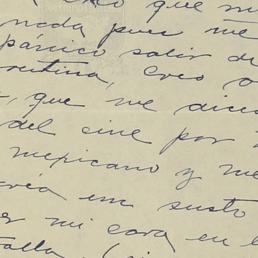 que
nada pues me
pánico salir de
rentina, creo
, que me dicen
del cine por
mexicano y me
ría un susto
er mi cara en l
talla (si